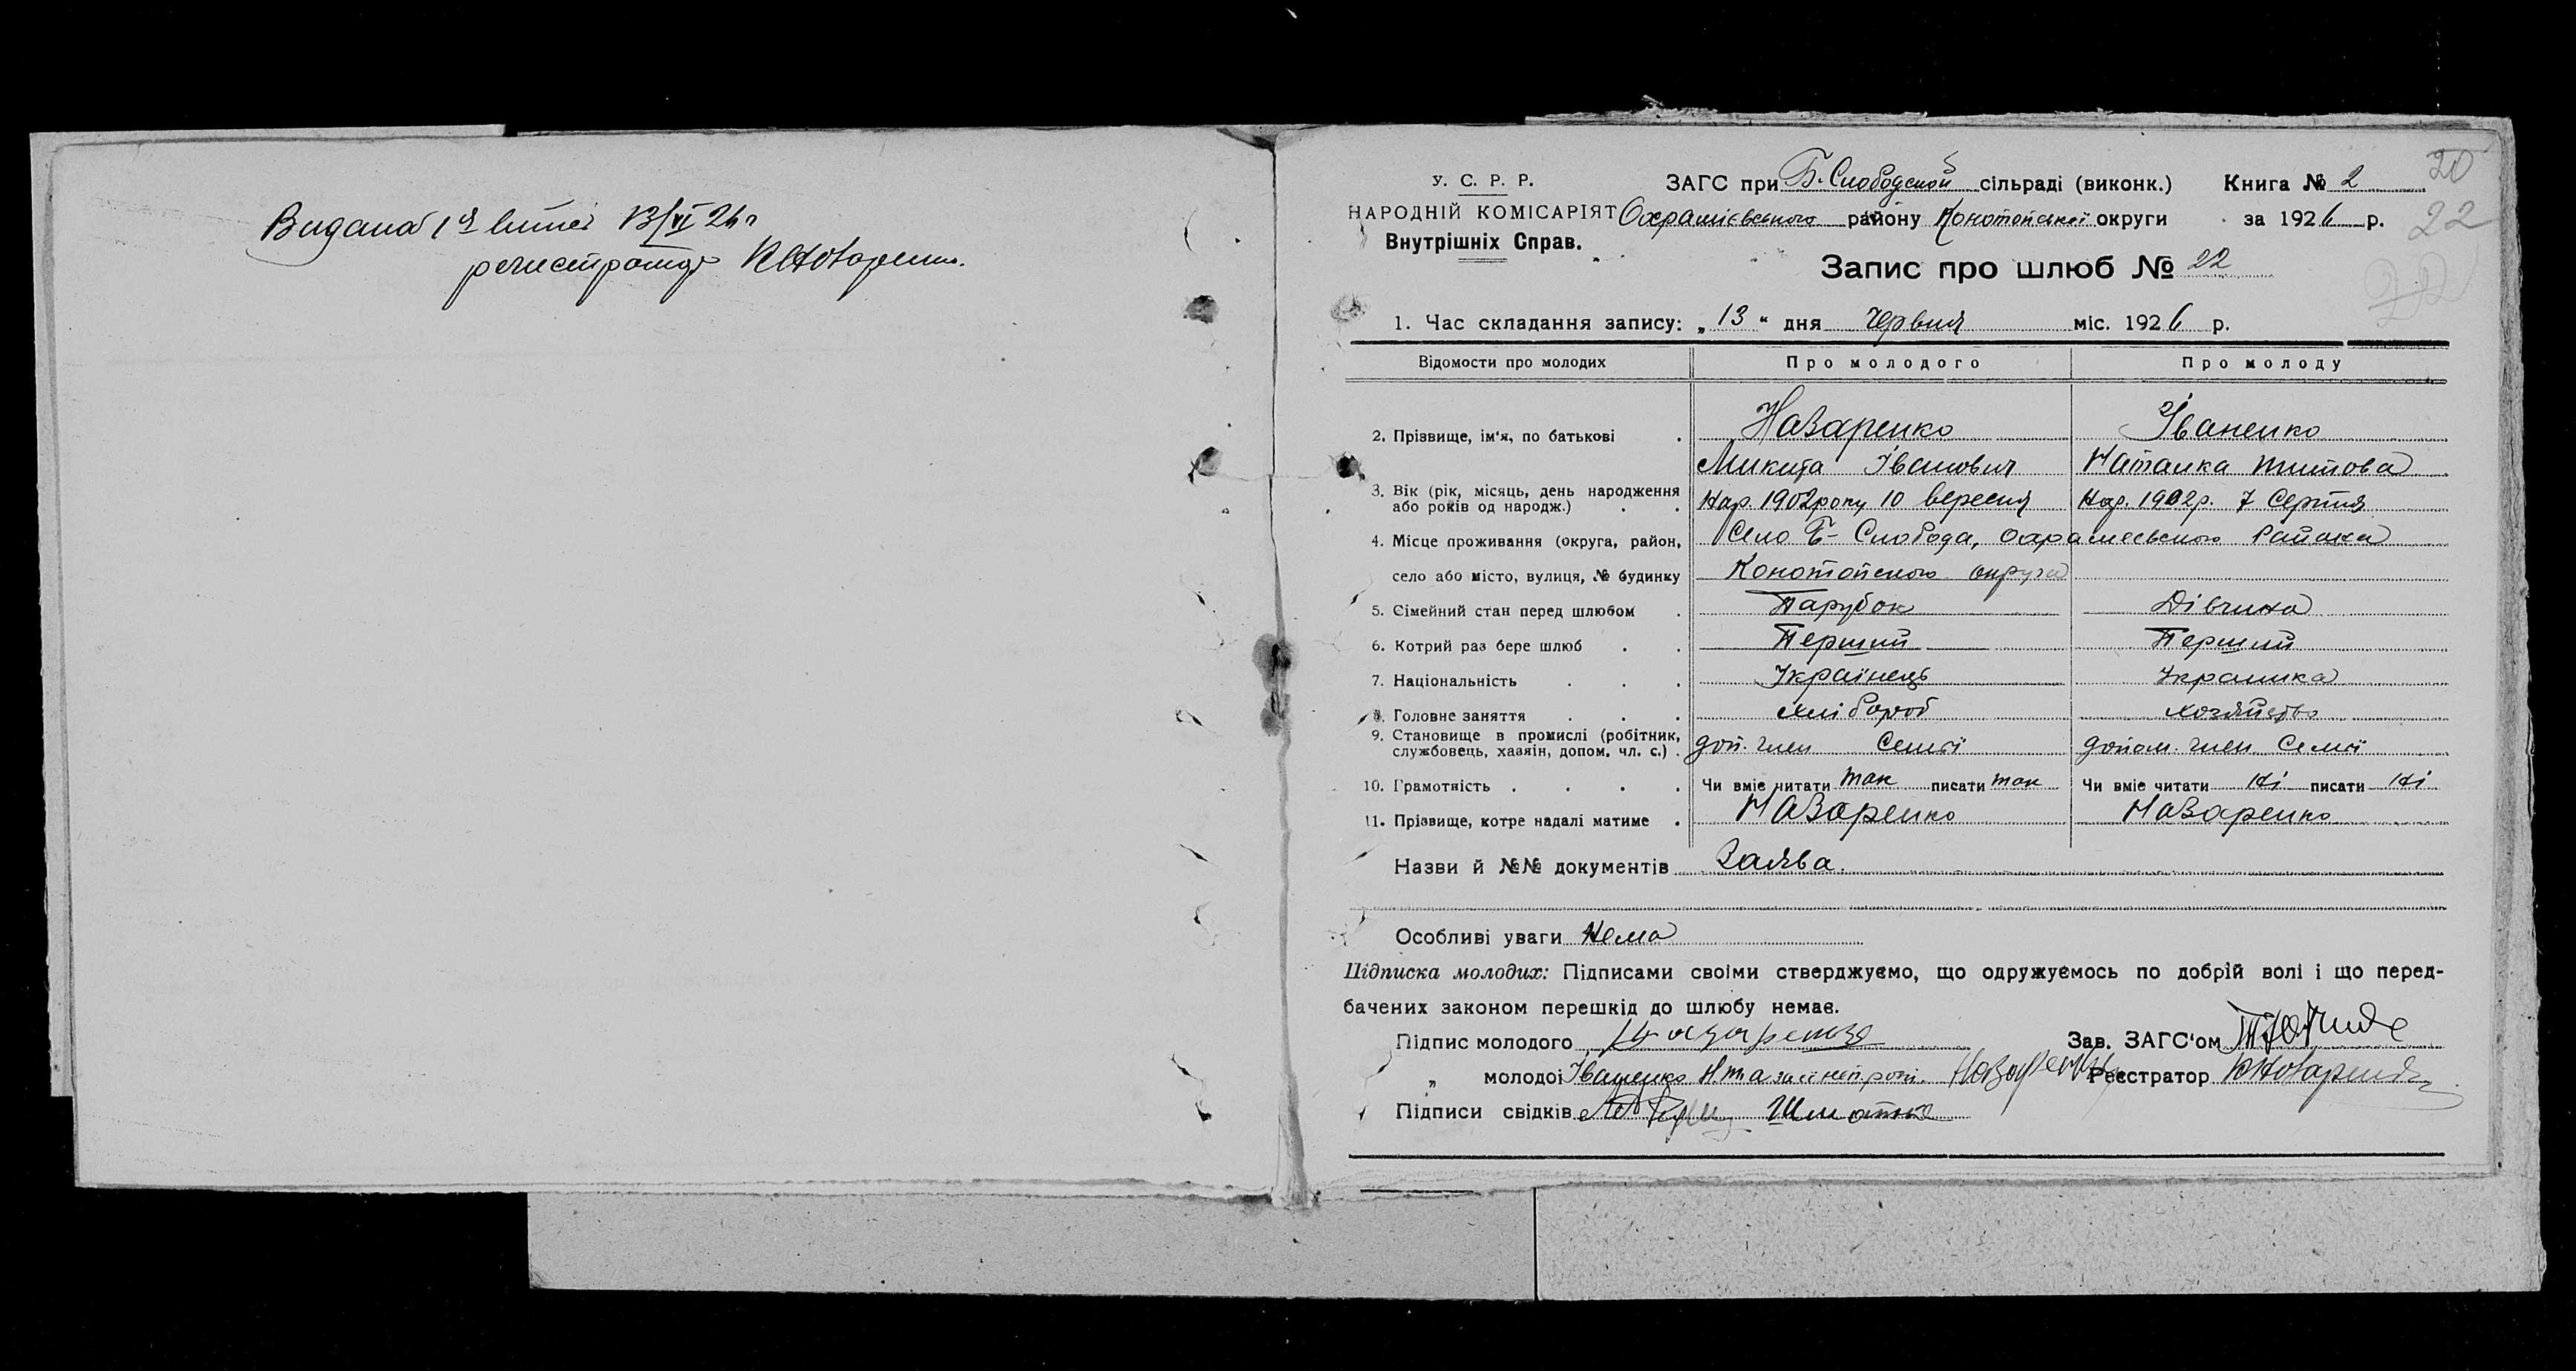 Видана 1й витяг 13/VI 26 г
регистратор
20
22
22
У. С. Р. Р.
НАРОДНІЙ КОМІСАРІЯТ
Внутрішніх Справ.
ЗАГС при Б. Слободской сільраді (виконк.) Книга № 2
Охрамієвського району Конотопської округи за 1926 р.
Запис про шлюб № 22
1. Час складання запису: „ 13 “ дня Червня міс. 1926 р.
Відомости про молодих Про молодого Про молоду
2. Прізвище, ім'я, по батькові . Назаренко Іваненко
Микита Іванович Наталка Титова
3. Вік (рік, місяць, день народження
або років од народж.) . . Нар. 1902 року 10 вересня Нар. 1902 р. 7 Серпня
4. Місце проживання (округа, район, Село Б- Слобода, Охрамеевского Района
село або місто, вулиця, № будинку Конотопского округа
5. Сімейний стан перед шлюбом . Парубок Дівчина
6. Котрий раз бере шлюб . . Перший Перший
7. Національність . . . Українець Украинка
8. Головне заняття . . . хлібороб хозяйство
9. Становище в промислі (робітник,
службовець, хазяін, допом. чл. с.) . доп. член Семї допом. член Семї
10. Грамотність . . . . Чи вміє читати так писати так Чи вміє читати ні писати ні
11. Прізвище, котре надалі матиме . Назаренко Назаренко
Назви й №№ документів Заява.
Особливі уваги Нема
Підписка молодих: Підписами своїми стверджуємо, що одружуємось по добрій волі і що перед-
бачених законом перешкід до шлюбу немає.
Підпис молодого Назаренко Зав. ЗАГС'ом
„ молодої Іваненко Реєстратор
Підписи свідків Шматко